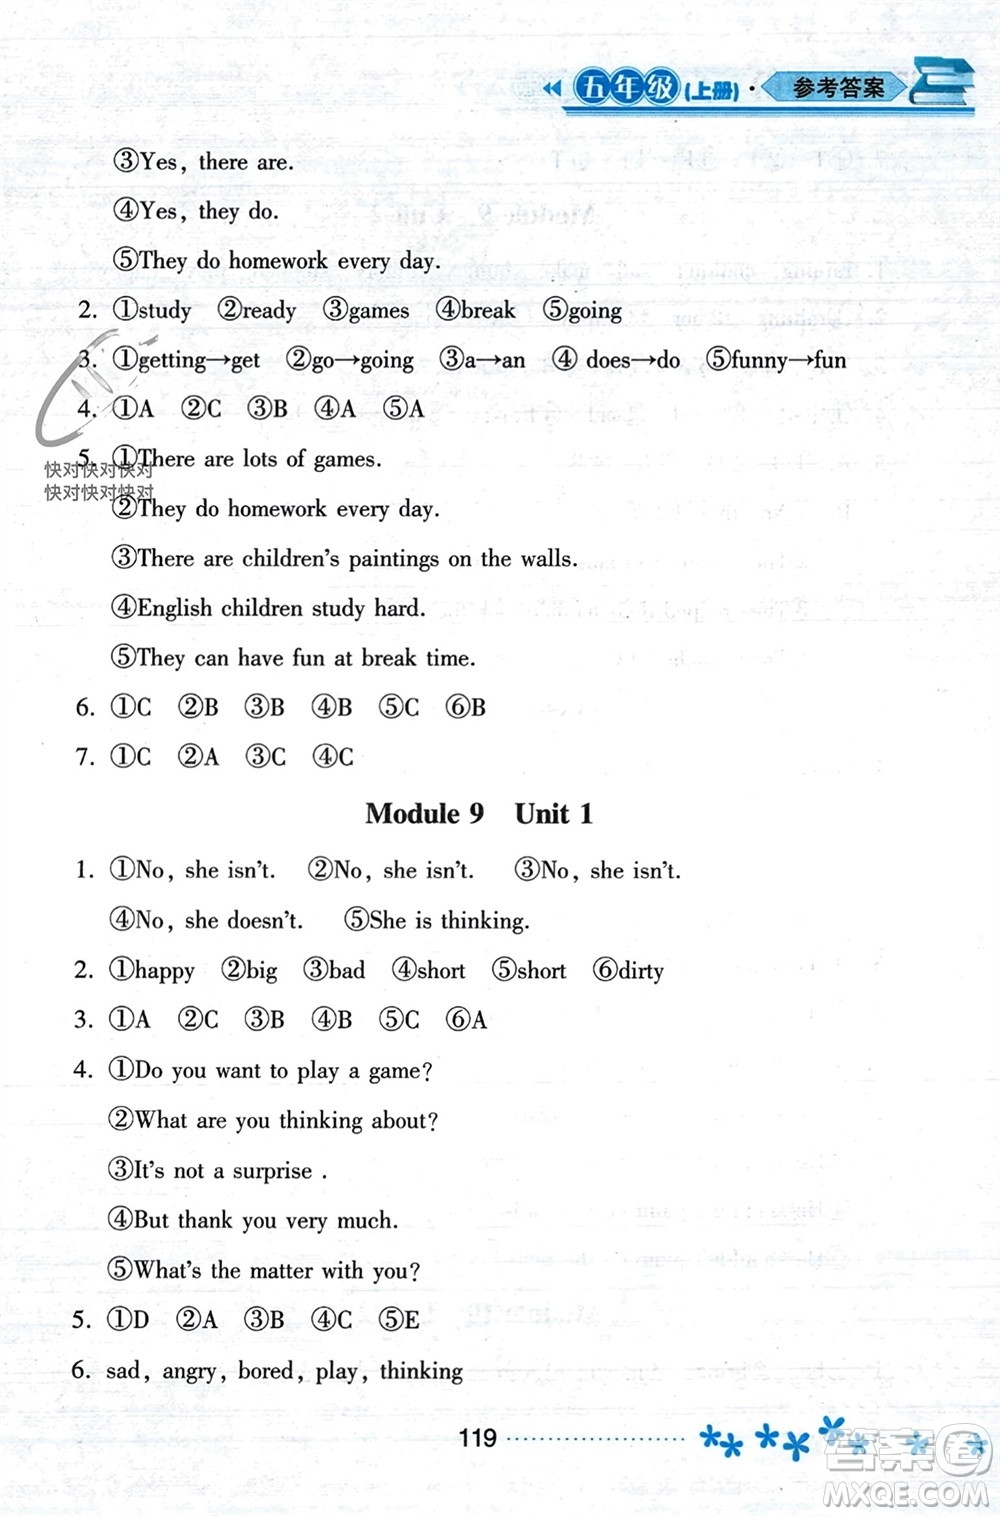 五年级(上册)·参考答案
③Yes, there are.
④Yes, they do.
⑤They do homework every day.
2. ①study ②ready ③games ④break ⑤going
3. ①getting→get ②go→going ③a→an ④ does→do ⑤funny→fun
4. ①A ②C ③B ④A ⑤A
5. ①There are lots of games.
快对快对快对
快对快对快对
②They do homework every day.
③There are children's paintings on the walls.
④English children study hard.
⑤They can have fun at break time.
6. ①C ②B ③B ④B ⑤C ⑥B
7. ①C ②A ③C ④C
Module 9 Unit 1
1. ①No, she isn't. ②No, she isn't. ③No, she isn't.
④No, she doesn't. ⑤She is thinking.
2. ①happy ②big ③bad ④short ⑤short ⑥dirty
3. ①A ②C ③B ④B ⑤C ⑥A
4. ①Do you want to play a game?
②What are you thinking about?
③It's not a surprise .
④But thank you very much.
⑤What's the matter with you?
5. ①D ②A ③B ④C ⑤E
6. sad, angry, bored, play, thinking
119
答案圈
MXQE.COM